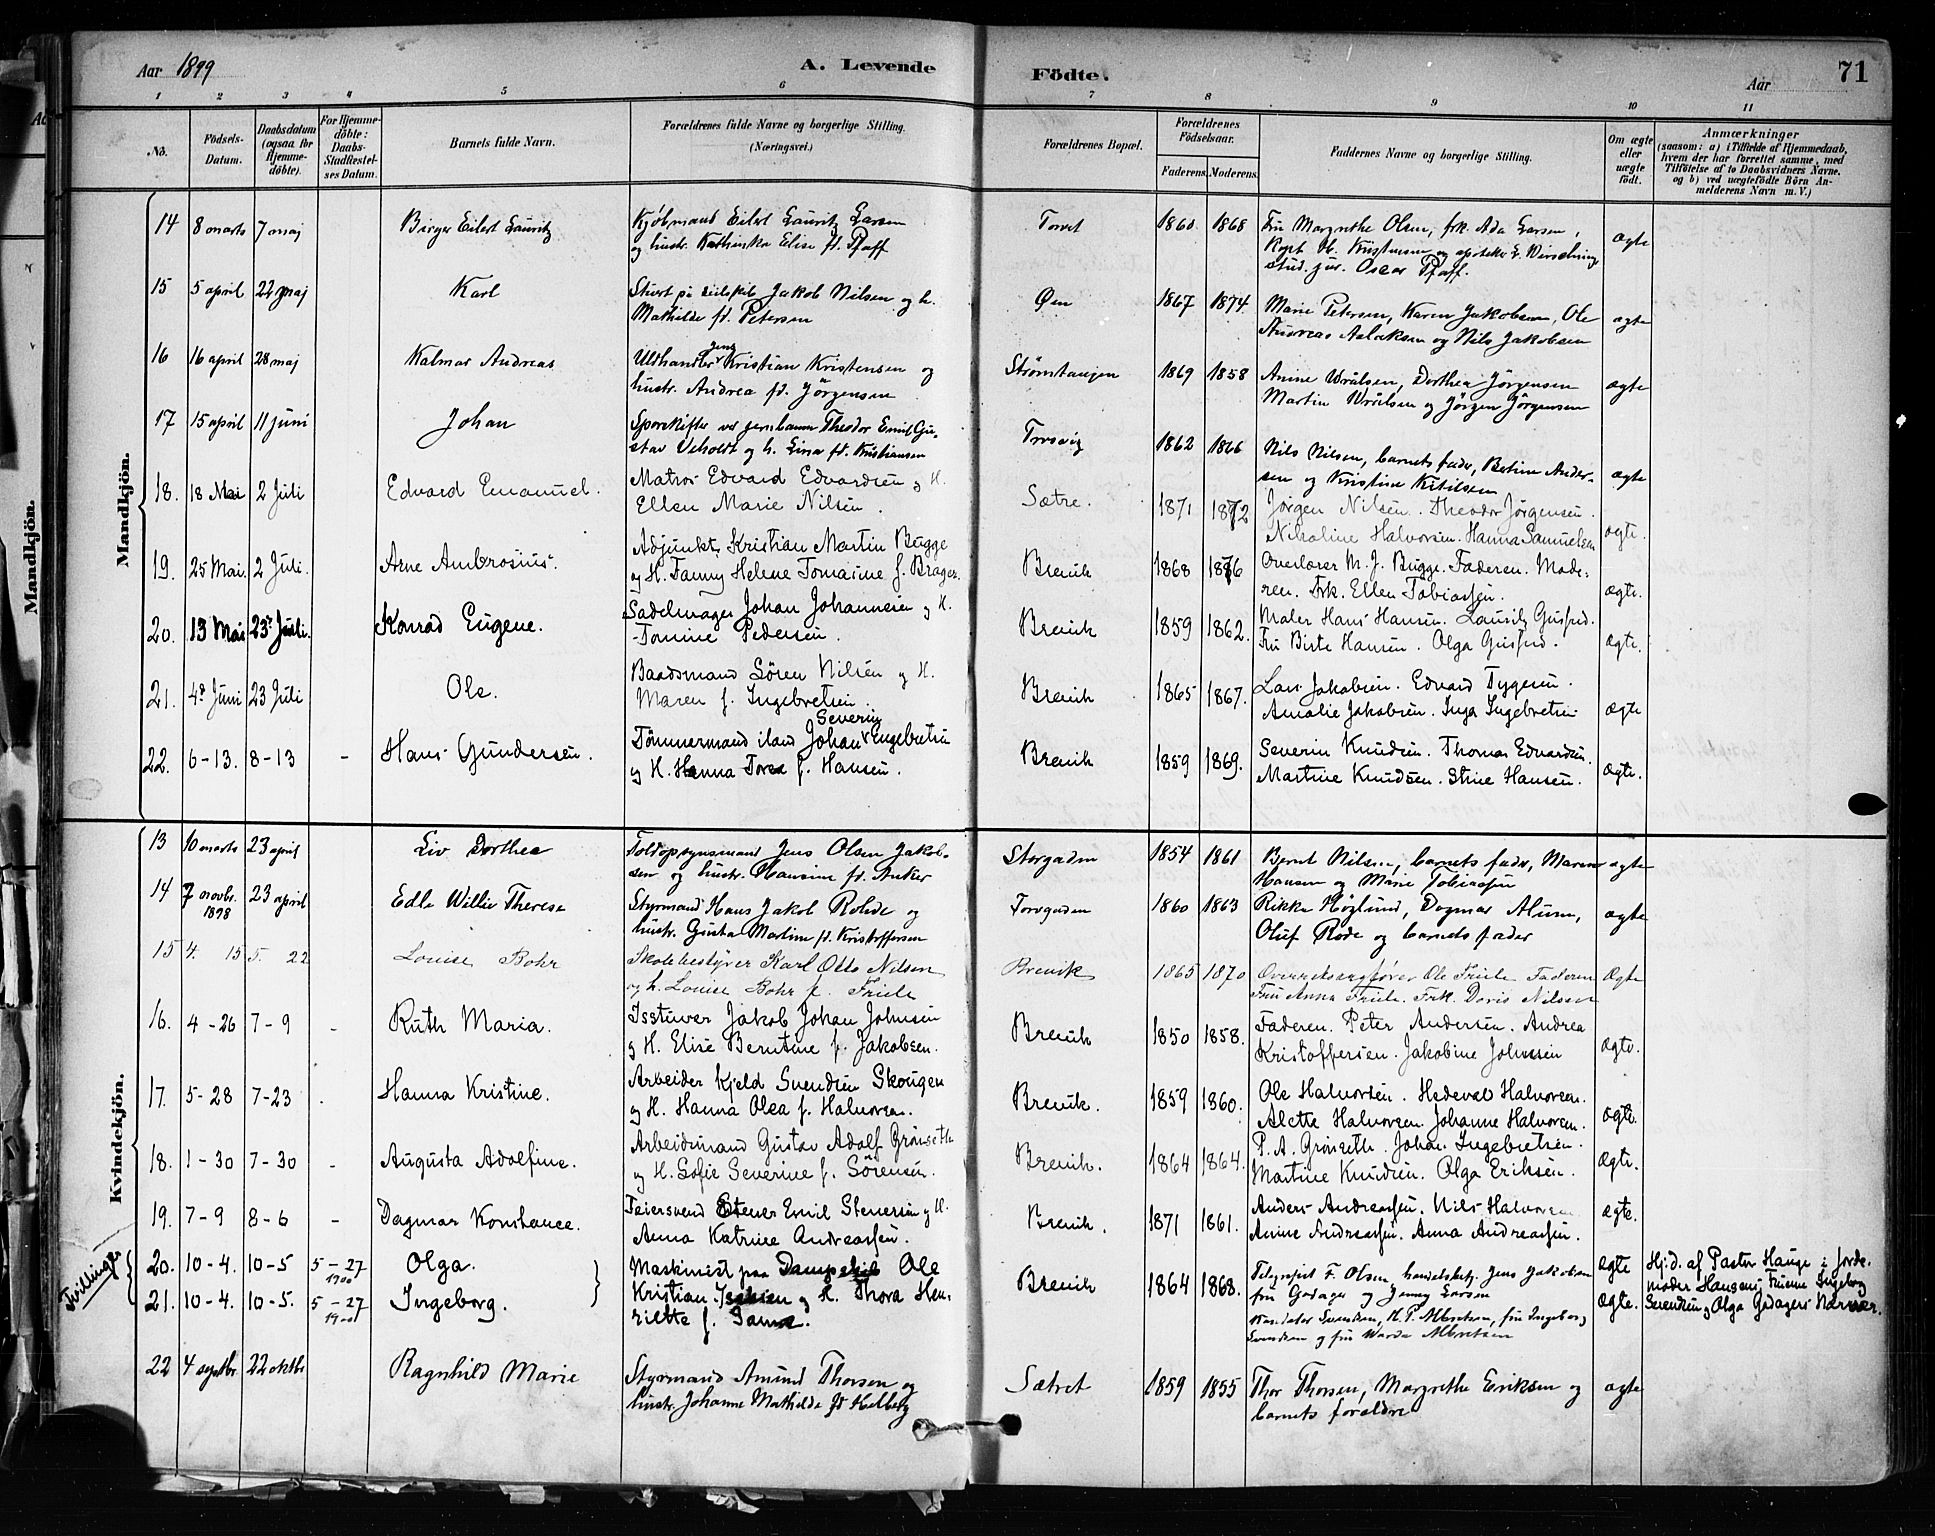 Aar 1899
A. Levende
Födte.
Aar
71
1 2 3 4 5 6 7 8 9 10 11
No.
Födsels-Datum.
Daabsdatum (ogsaa for Hjemme-döbte).
For Hjemme-döbte: Daabs-Stadfæstel-ses Datum.
Barnets fulde Navn.
Forældrenes fulde Navne og borgerlige Stilling. (Næringsvei.)
Forældrenes Bopæl.
Forældrenes Födselsaar.
Faderens. Moderens.
Faddernes Navne og borgerlige Stilling.
Om ægte eller uægte födt.
Anmærkninger
(saasom: a) i Tilfælde af Hjemmedaab,
hvem der har forrettet samme, med
Tilföielse af to Daabsvidners Navne.
og b) ved uægtefödte Börn An-
melderens Navn m. V.)
Mandkjön.
Mandkjön.
14 8 marts 7 maj Birger Eilert Lauritz Kjøbmand Eilert Lauritz Larsen Torvet 1860 1868 Fru Margrethe Olsen, frk. Ada Larsen, ægte
og hustr. Kathinka Elise fd. Pfaff Kapt. Kristensen og apoteker
stud. jur. Oscar Pfaff.
15 5 april 22 maj Karl Stuert på seilskib Jakob Nilsen og h. Øen 1867 1874. Marie Petersen, Karen Jakobsen, Ole ægte
Mathilde fd. Petersen Andreas Aslaksen og Nils Jakobsen
16 16 april 28 maj Kalmar Andreas Uldhandler Jens Kristian Kristensen og Strømtangen 1869 1858 Anine Wrålsen, Dorthea Jørgensen ægte
hustr. Andrea fd. Jørgensen Martin Wrålsen og Jørgen Jørgensen
17 15 april 11 juni Johan Sporskifter ved jernbanen Theodor Emil Gu- Trosvig 1862 1866 Nils Nilsen, barnets fader, Betine Ander- ægte
stav Ueholdt og h. Lina fd. Kristiansen sen og Kristine Ketilsen
18. 18 Mai 2 Juli Edvard Emanuel. Matros Edvard Edvardsen og H. Sætre. 1871 1872 Jørgen Nilsen. Theodor Jørgensen. ægte.
Ellen Marie Nilsen. Nikoline Halvorsen. Hanna Samuelsen
19. 25 Mai. 2 Juli. Arne Ambrosius. Adjunkt Kristian Martin Bugge Brevik 1868 1876 Overlærer M. J. Bugge. Faderen. Mode- ægte.
og H. Fanny Helene Tomasine f. Brager. ren. Frk. Ellen Tobiassen.
20. 13 Mai 23 Juli. Konrad Eugene. Sadelmager Johan Johannesen og H. Brevik 1859 1862. Maler Hans Hansen. Lauritz Gusfred. ægte.
Tomine Pedersen. Fru Birte Hansen. Olga Gusfred.
21. 4de Juni 23 Juli Ole. Baadsmand Sören Nilsen og H. Brevik 1865 1867. Lars Jakobsen. Edvard Tygesen. ægte
Maren f. Ingebretsen. Amalie Jakobsen. Inga Ingebretsen
22. 6-13. 8-13 - Hans Gundersen. Tömmermand iland Johan Severin Ingebretsen Brevik 1859 1869. Severin Knudsen. Thomas Edvardsen. ægte.
og H. Hanna Torea f. Hansen. Martine Knudsen. Stine Hansen.
Kvindekjön.
13 10 marts 23 april Liv Dorthea Toldopsynsmand Jens Olsen Jakob- Storgaden 1854 1861 Bernt Nilsen, barnets fader, Maren ægte
sen og hustr. Hansine fd. Anker Hansen og Marie Tobiassen
14 7 novbr. 1898 23 april Edle Willie Therese Styrmand Hans Jakob Rohde og Torvgaden 1860 1863 Rikka Höglund, Dagmar Alum, ægte
hustr. Gusta Martine fd. Kristoffersen Oluf Rode og barnets fader
15 4. 15 5. 22 Louise Bohr Skolebestyrer Karl Otto Nilsen Brevik 1865 1870 Overretssagfører Ole Friele Faderen Ægte
og h. Louise Bohr f. Friele Fru Anna Friele. Frk. Doris Nilssen
16. 4-26 7-9 - Ruth Maria. Isstuver Jakob Johan Johnsen Brevik 1850 1858. Faderen. Peter Andersen. Andrea ægte.
og H. Elise Berntine f. Jakobsen. Kristoffersen. Jakobine Johnsen
17. 5-28 7-23 . Hanna Kristine. Arbeider Kjeld Svendsen Skougen Brevik. 1859 1860. Ole Halvorsen. Hedevel Halvorsen. ægte.
og H. Hanna Olea f. Halvorsen. Alette Halvorsen. Johanne Halvorsen.
18. 1-30 7-30 - Augusta Adolfine. Arbeidsmand Gustav Adolf Grönseth Brevik. 1864 1864. P. A. Grönseth. Johan Ingebretsen. ægte.
og H. Sofie Severine f. Sörensen. Martine Knudsen. Olga Eriksen.
19. 7-9 8-6 - Dagmar Konstance. Feiersvend Stener Emil Stenersen og H. Brevik. 1871 1861. Anders Andreassen. Nils Halvorsen ægte.
Anna Katrine Andreassen. Anine Andreassen. Anna Andreassen.
Tvillinger
20. 10-4. 10-5 5-27 1900 Olga. Maskinist paa Dampskib Ole Brevik 1864 1868. Telegrafist F. Olsen, handelsbetj. Jens Jakobsen ægte Hj.d. af Pastor Hauge i Jorde-
21. 10-4. 10-5. 5-27 1900 Ingeborg. Kristian og H. Thora Hen- fru Godager og Jenny Larsen ægte. moder Hansens, Fruene Ingeborg
riette f. Kandidat Svendsen, H. P. Albretsen, fru Ingeborg Svendsen og Olga Godagers Nærvær.
Svendsen og fru Warda Albretsen
22 4 septbr. 22 oktbr Ragnhild Marie Styrmand Amund Thorsen og Sætret 1859 1855 Thor Thorsen, Margrethe Eriksen og ægte
hustr. Johanne Mathilde fd. Helberg barnets forældre